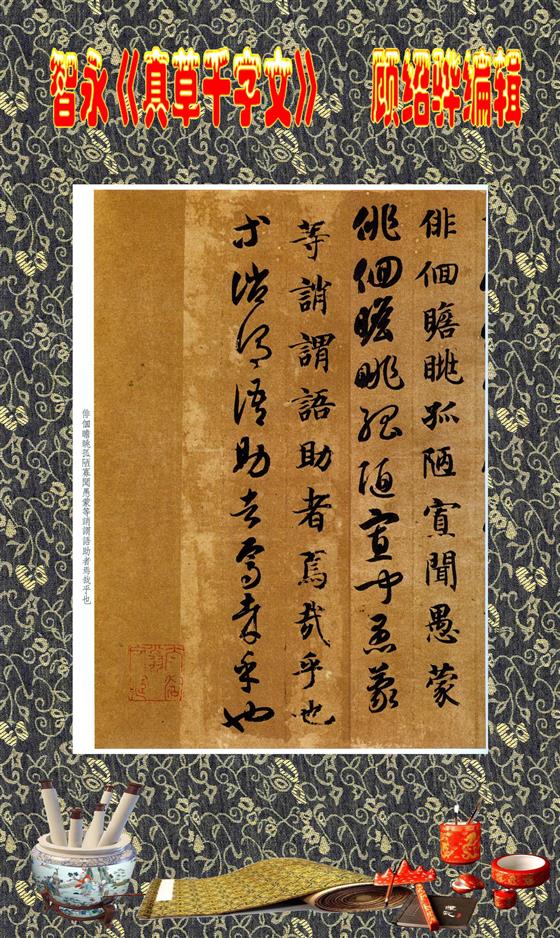 智永《真草千字文》 顾绍骅编辑
俳佪瞻眺孤陋寡聞愚蒙
俳佪瞻眺孤陋寡聞愚蒙
等誚謂語助者焉哉乎也
等誚謂語助者焉哉乎也
俳佪瞻眺孤陋寡聞愚蒙等誚謂語助者焉哉乎也